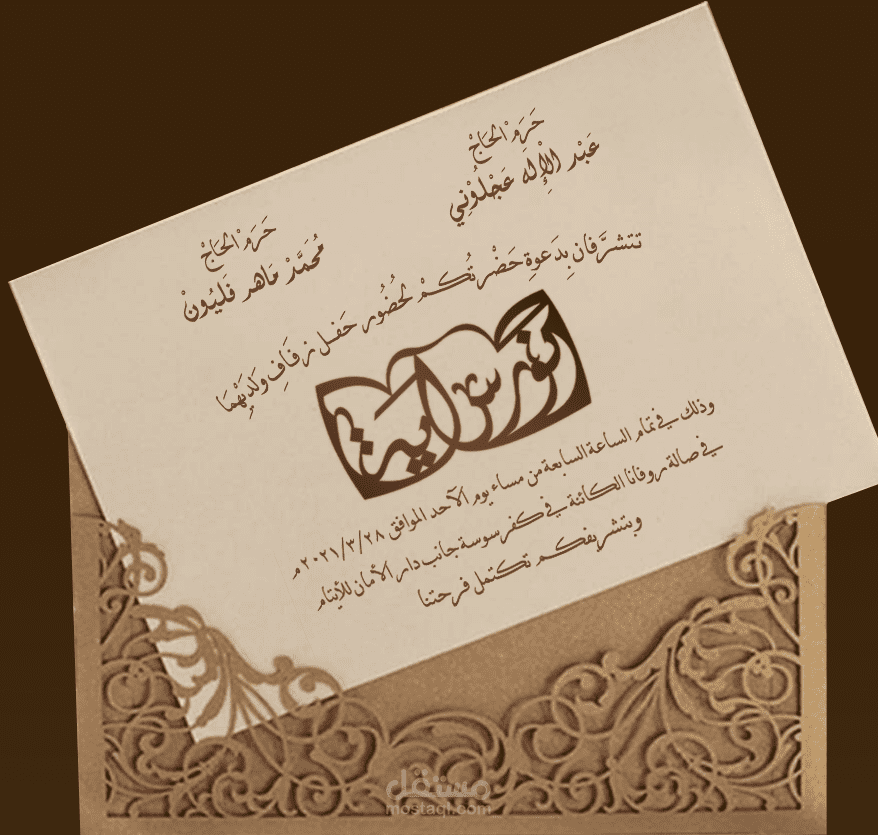 حَرَمْ الحَاجْ
عَبْد الْإِلَه عَجْلُوْنِي
حَرَمْ الحَاجْ
مُحَمَّدْ مَاهر فَليُونْ
تتشرَّفان بِدَعوةِ حَضْرتُكمْ لحُضُور حَفل زفَافِ ولَدِيْهْمَا
نورس اية
وذلك في تمام الساعة السابعة من مساء يوم الآحد الموافق ٢٠٢١/٣/٢٨ م
في صالة روفانا الكائنة في كفرسوسة جانب دار الأمان للأيتام
وبتشريفكم تكتمل فرحتنا
مستقل
mostaql.com